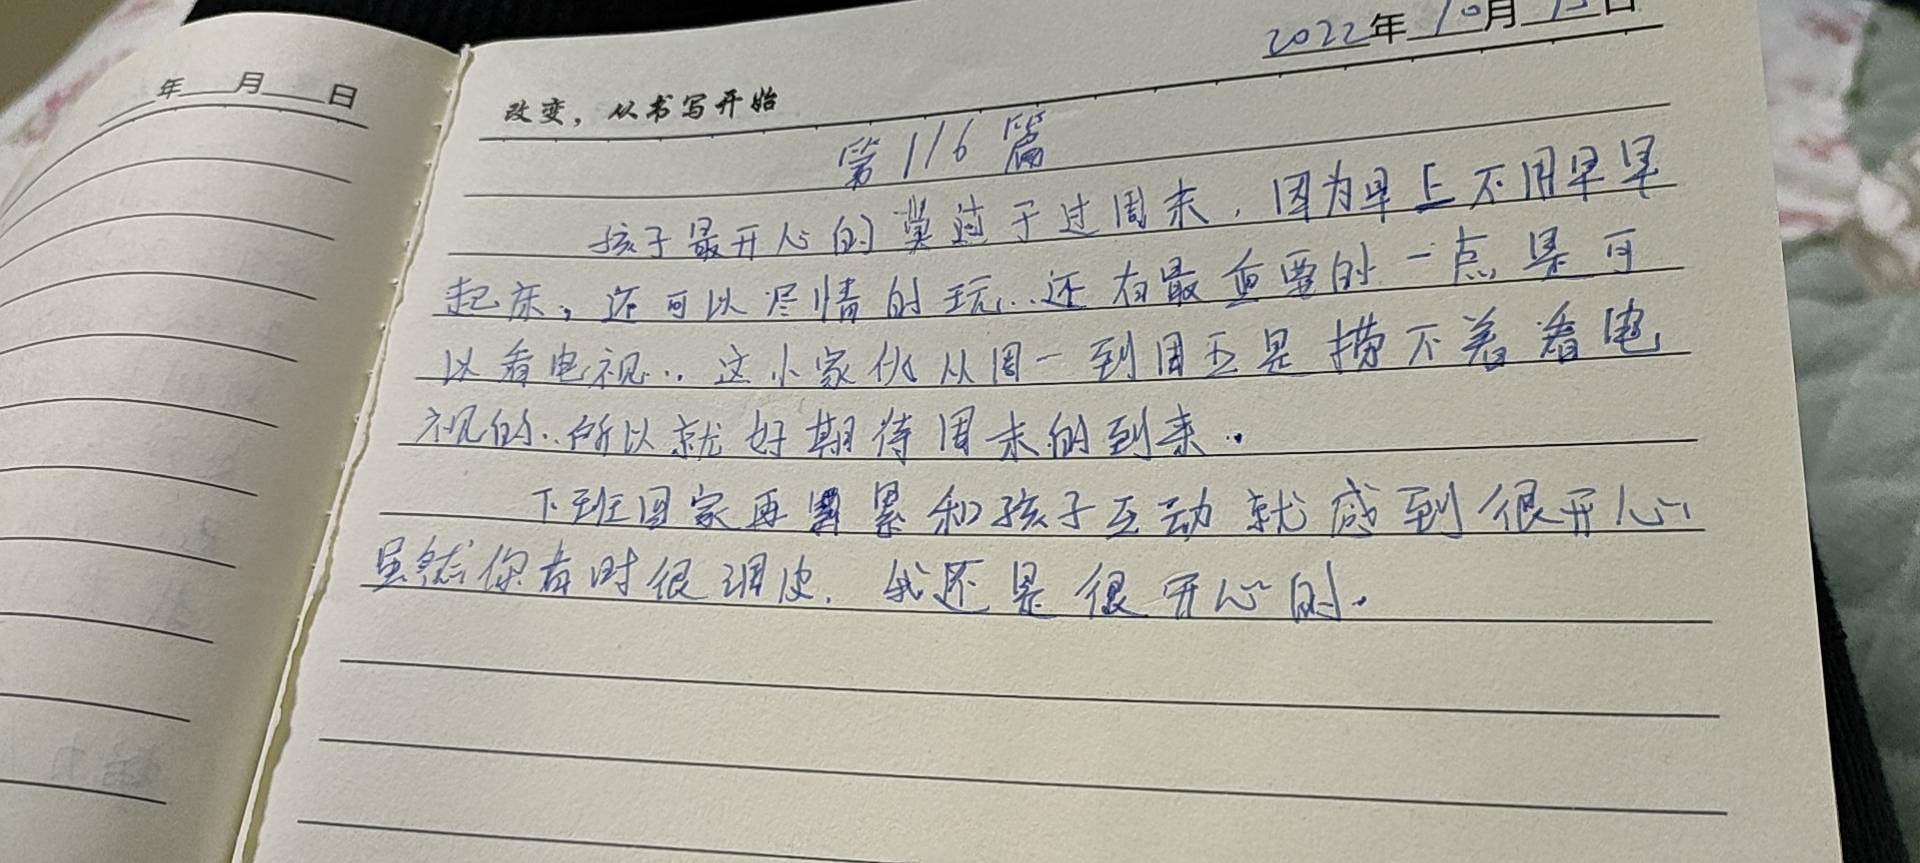 年 月 日
2022年10月15日
改变，从书写开始
第116篇
孩子最开心的莫过于过周末，因为早上不用早早
起床，还可以尽情的玩..还有最重要的一点是可
以看电视..这小家伙从周一到周五是捞不着看电
视的..所以就好期待周末的到来.
下班回家再累和孩子互动就感到很开心
虽然你有时很调皮.我还是很开心的.